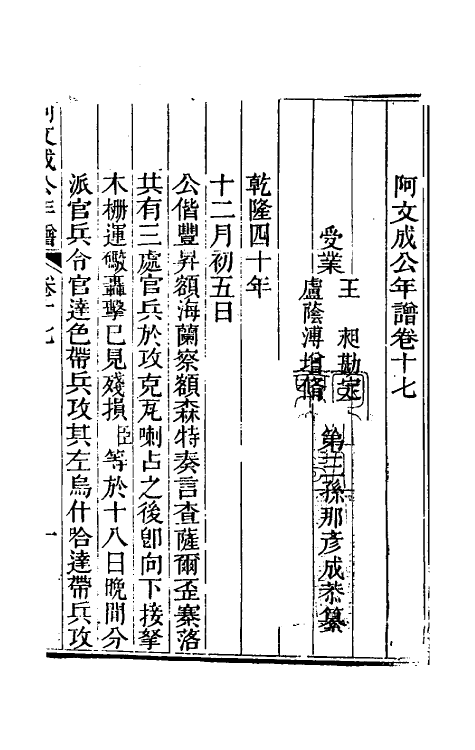 阿文成公年譜卷十七
受業
王昶勘定
盧蔭溥增修
第三孫那彥成恭纂
乾隆四十年
十二月初五日
公偕豐昇額海蘭察額森特奏言查薩爾歪寨落
共有三處官兵於攻克瓦喇占之後卽向下接拏
木柵運礮轟擊已見殘損臣等於十八日晚間分
派官兵令官達色帶兵攻其左烏什哈達帶兵攻
阿文成公年譜
卷十七
一